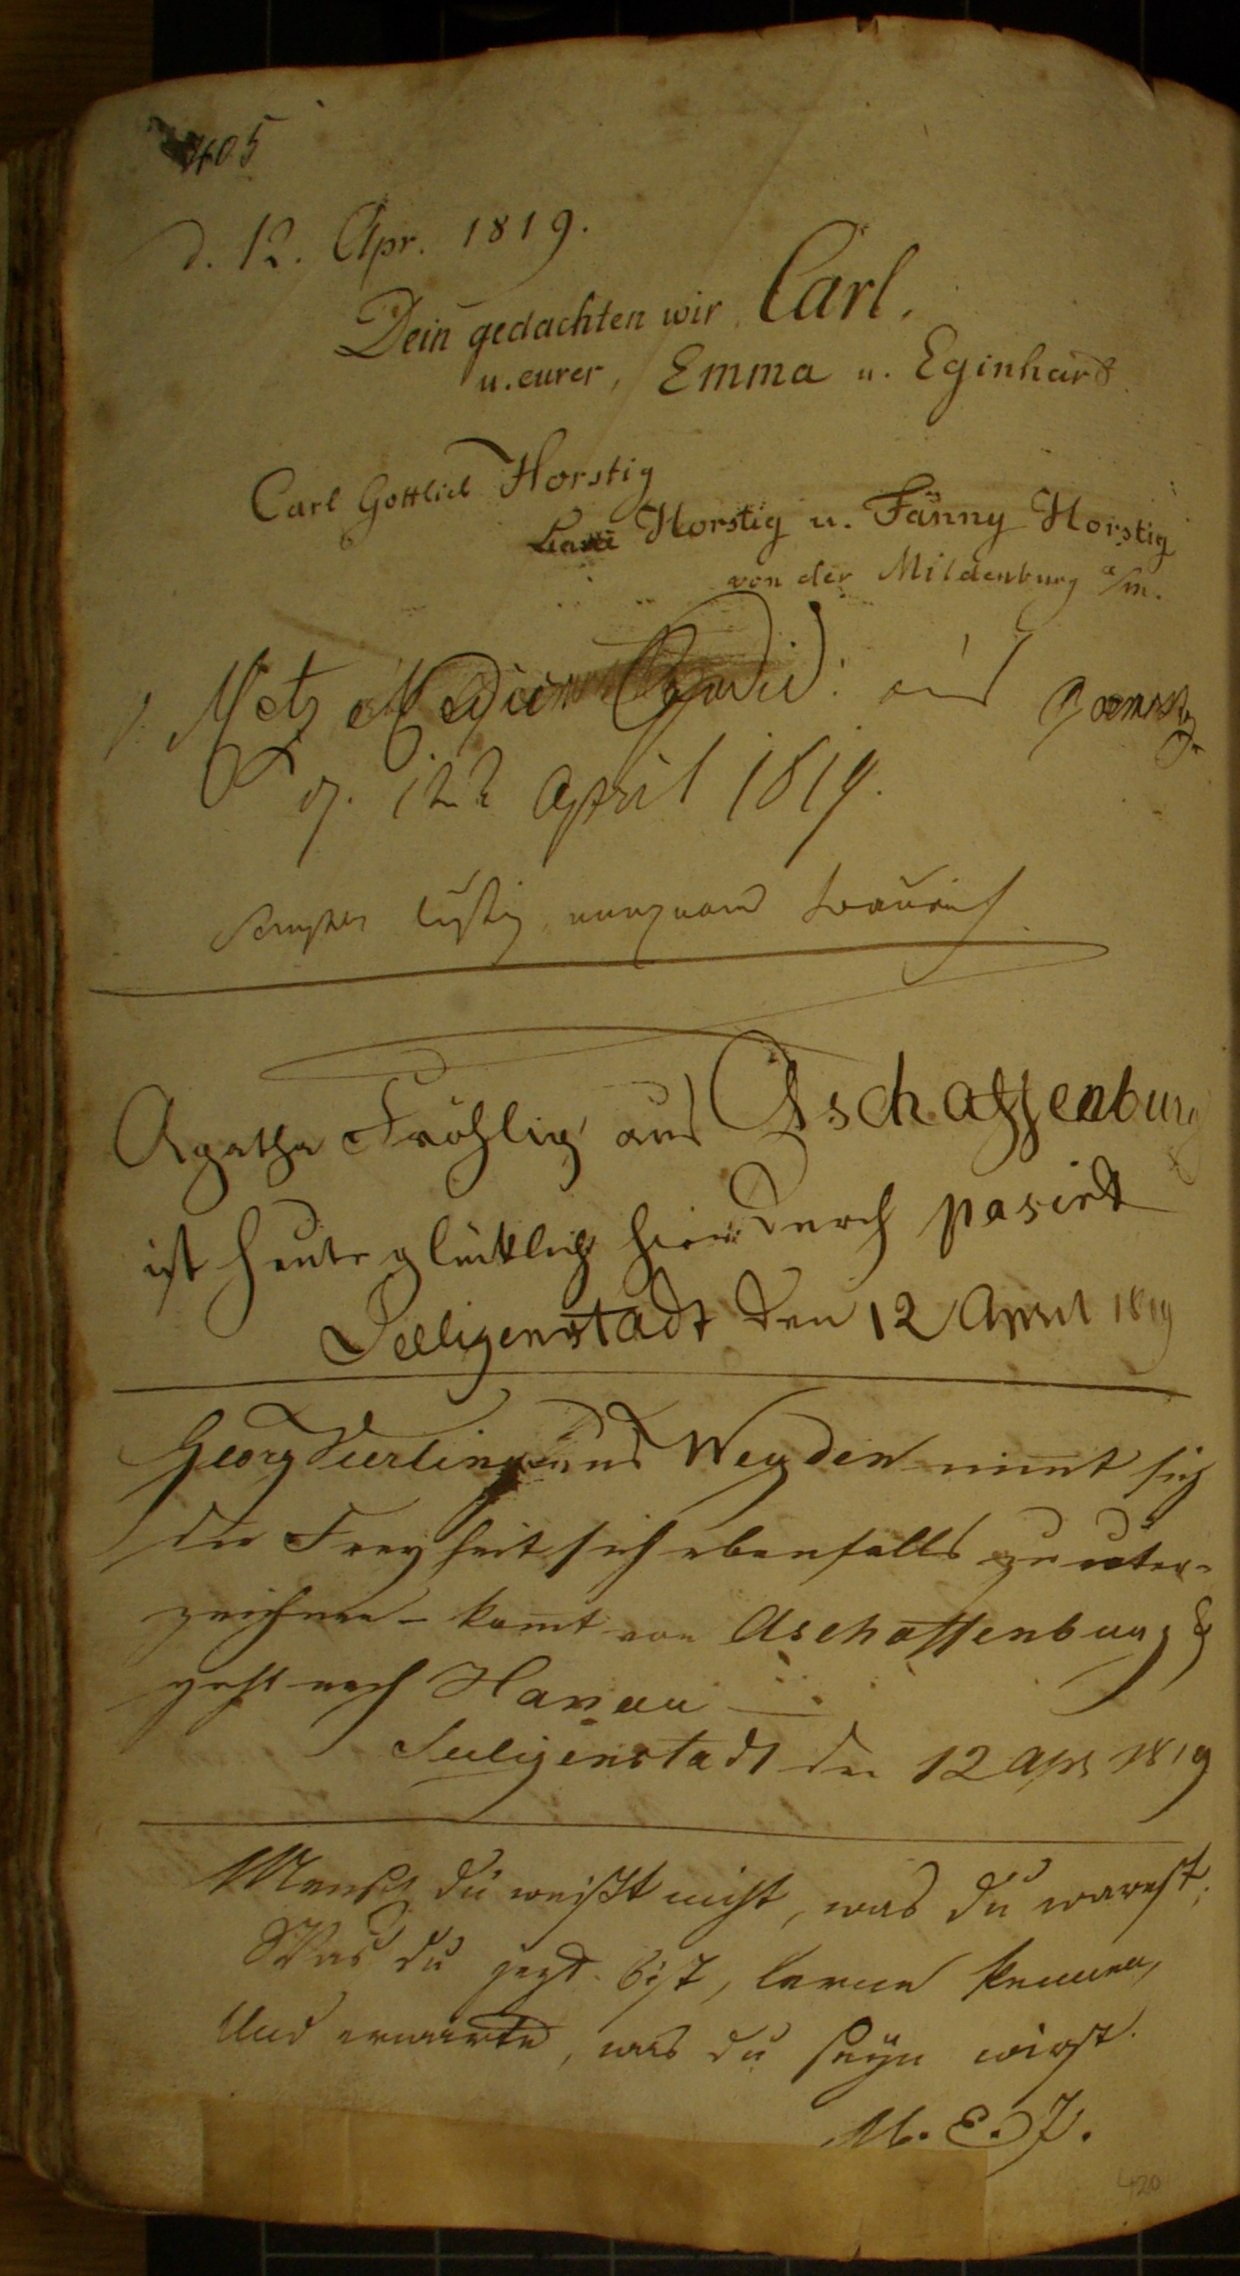 405
d. 12. Apr. 1819.
Dein gedachten wir Carl.
u. eurer, Emma u. Eginhard
Carl Gottlieb Horstig
Horstig u. Fanny Horstig
von der Mildenburg a/m.
Metz Medicin Candid: aus
d. 12t April 1819.
semper lustig, nunquam traurich
Agatha Fröhlig aus Aschaffenburg
ist heute glücklich hier durch pasirt
Selligenstadt den 12 April 1819
Georg aus Weyden nimt sich
die Freyheit sich ebenfalls zu unter-
zeichnen - komt von Aschaffenburg &
geht nach Hanau
Seeligenstadt den 12 Apr 1819
Mensch du weißt nicht, was du warest;
Was du jezt bist, lerne kennen,
Und erwarte, was du seyn wirst.
M. E. J.
420